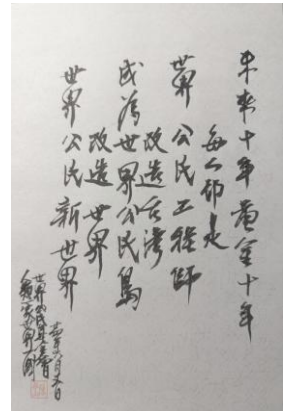 未來十年黃金十年
每人都是
世界公民工程師
改造台灣
成為世界公民島
改造世界
世界公民新世界